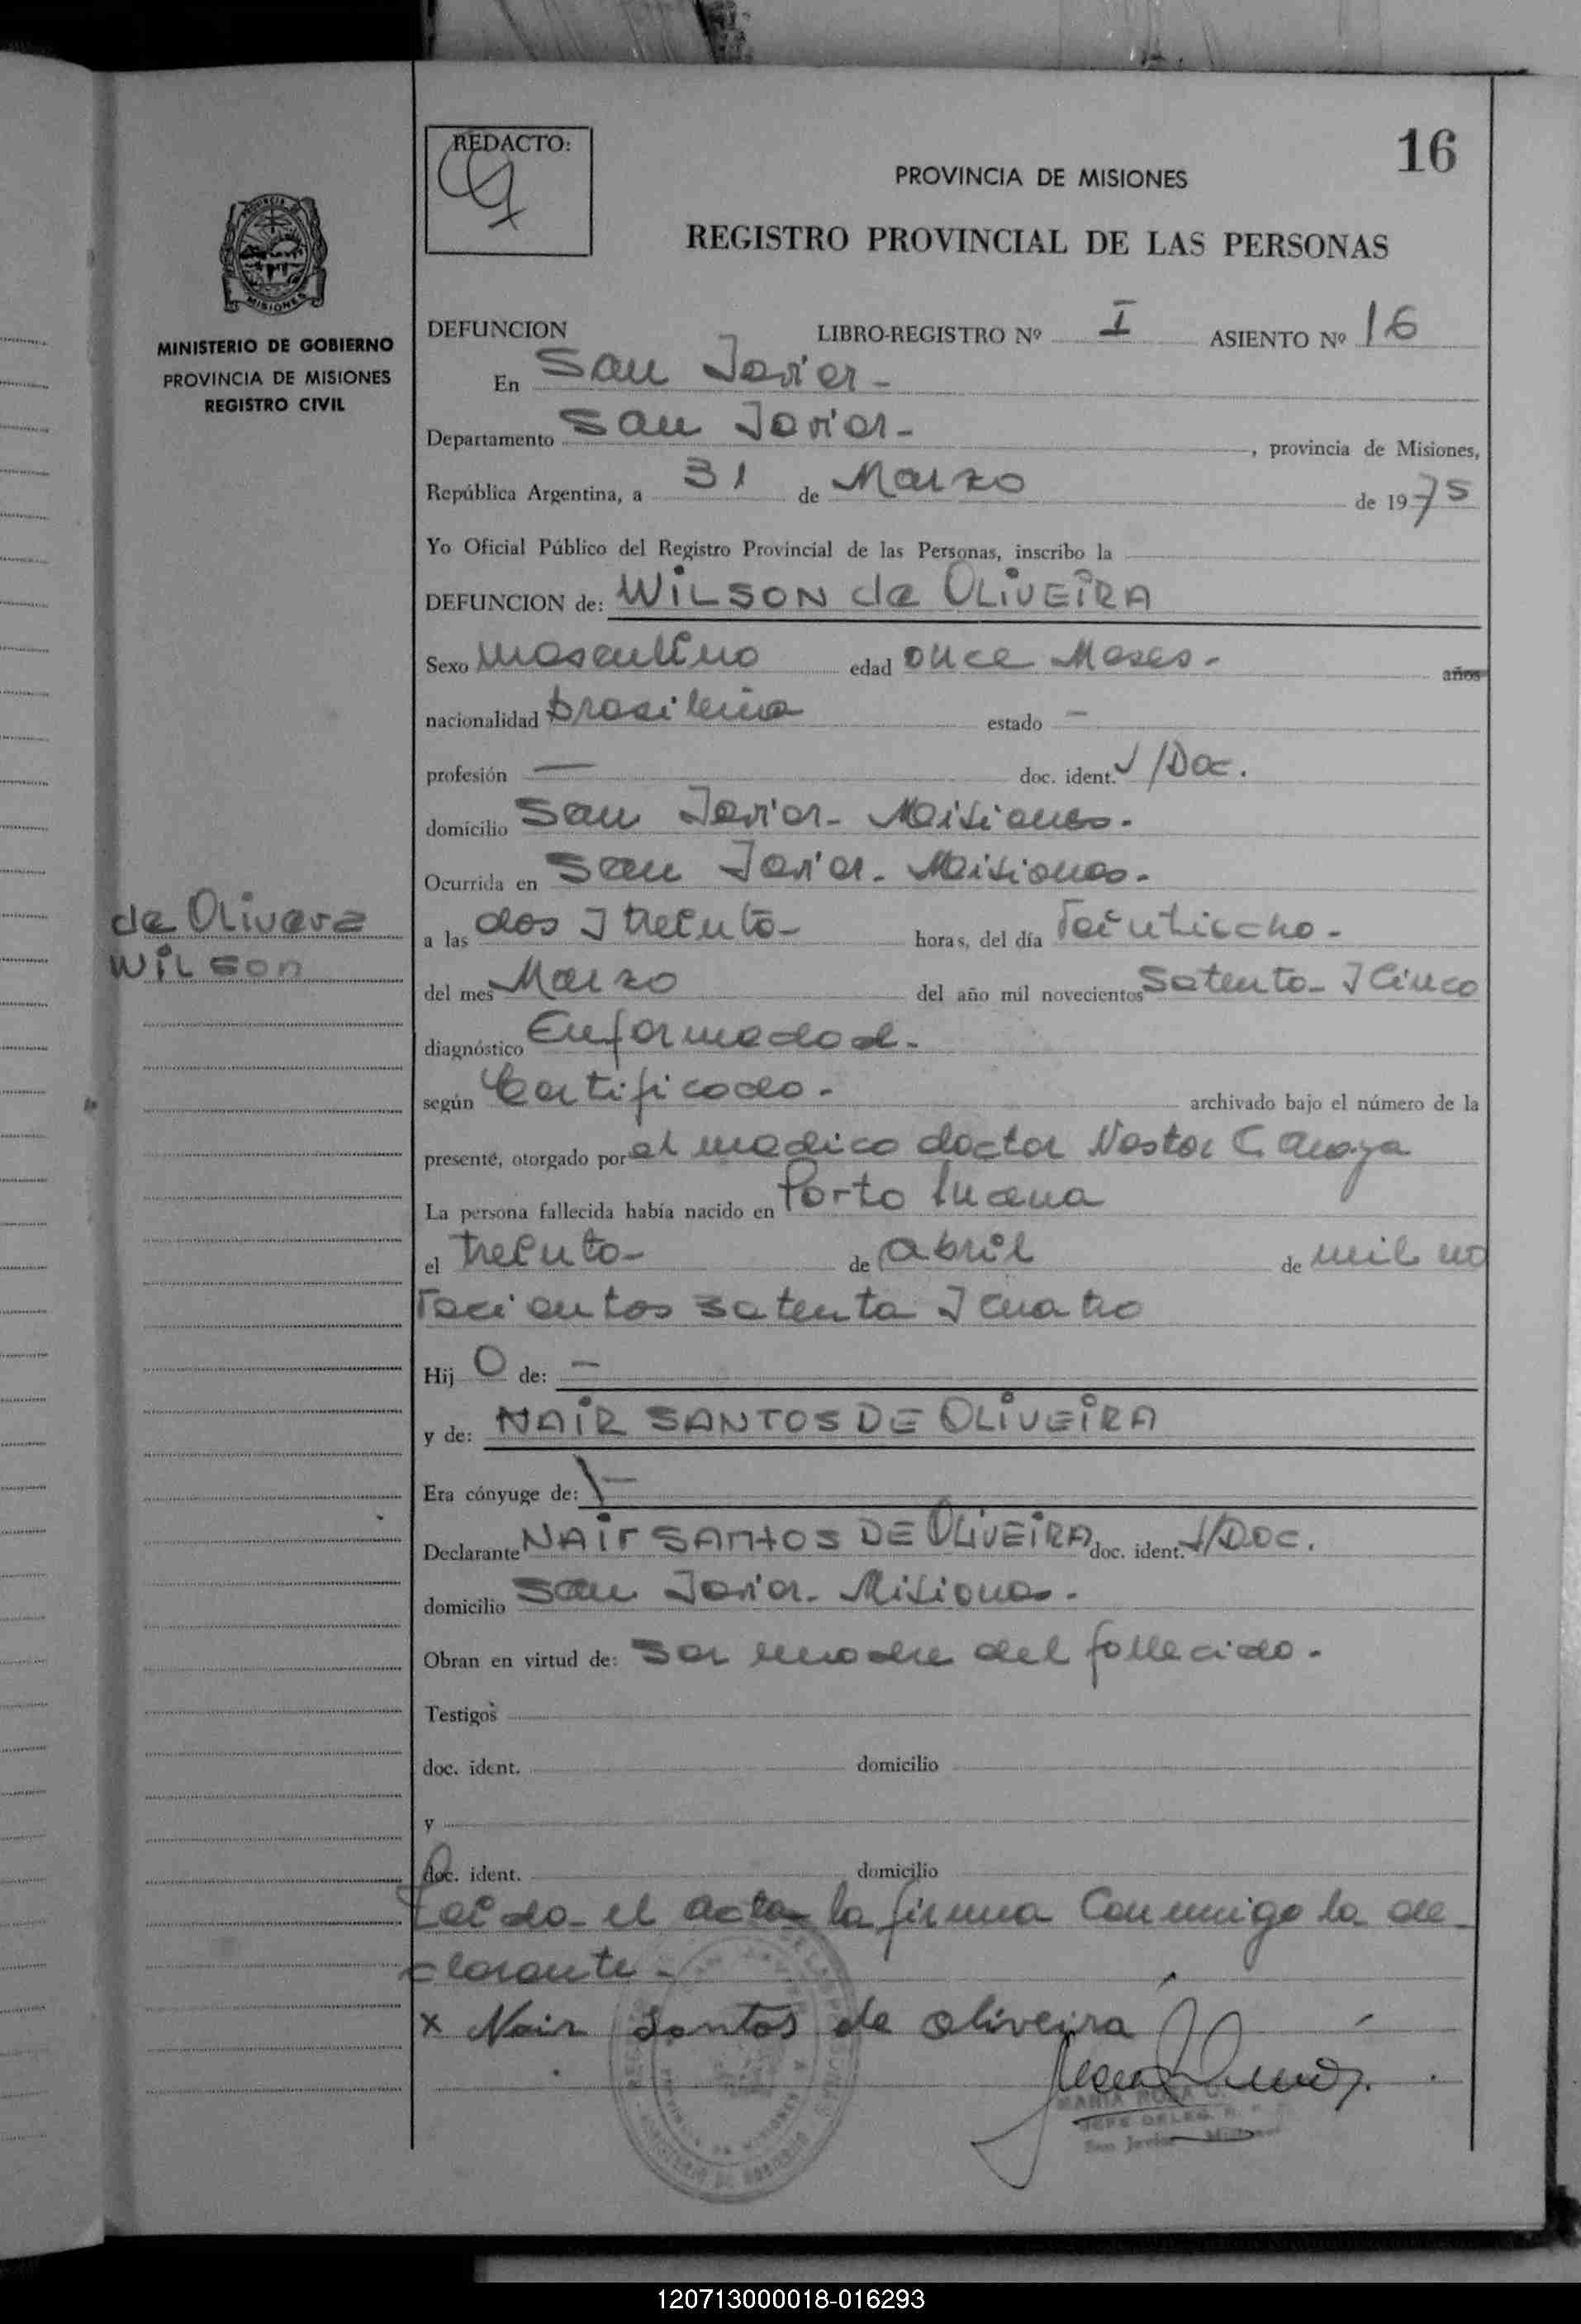 16
REDACTO:
PROVINCIA DE MISIONES
REGISTRO PROVINCIAL DE LAS PERSONAS
MINISTERIO DE GOBIERNO
PROVINCIA DE MISIONES
REGISTRO CIVIL
DEFUNCION LIBRO-REGISTRO Nº I ASIENTO Nº 16
En San Javier -
Departamento San Javier - , provincia de Misiones,
República Argentina, a 31 de Marzo de 1975
Yo Oficial Público del Registro Provincial de las Personas, inscribo la
DEFUNCION de: WILSON de OLIVEIRA
Sexo masculino edad once Meses - años
nacionalidad brasileña estado -
profesión — doc. ident. s/Doc.
domicilio San Javier - Misiones -
Ocurrida en San Javier - Misiones -
de Olivera
Wilson
a las dos y treinta - horas, del día veintiocho -
del mes Marzo del año mil novecientos setenta - y cinco
diagnóstico Enfermedad -
según Certificado - archivado bajo el número de la
presente, otorgado por el medico doctor Nestor C. Anaya
La persona fallecida había nacido en Porto Lucena
el treinta - de abril de mil no
vecientos setenta y cuatro
Hij o de: —
y de: NAIR SANTOS DE OLIVEIRA
Era cónyuge de: \—
Declarante NAIR SANTOS DE OLIVEIRA doc. ident. s/DOC.
domicilio San Javier - Misiones -
Obran en virtud de: ser madre del fallecido -
Testigos
doc. ident. domicilio
y
doc. ident. domicilio
Leida el acta la firma conmigo la de-
clarante -
x Nair Santos de oliveira
MARIA ROSA
JEFE DELEG. R.
San Javier - Misiones
120713000018-016293